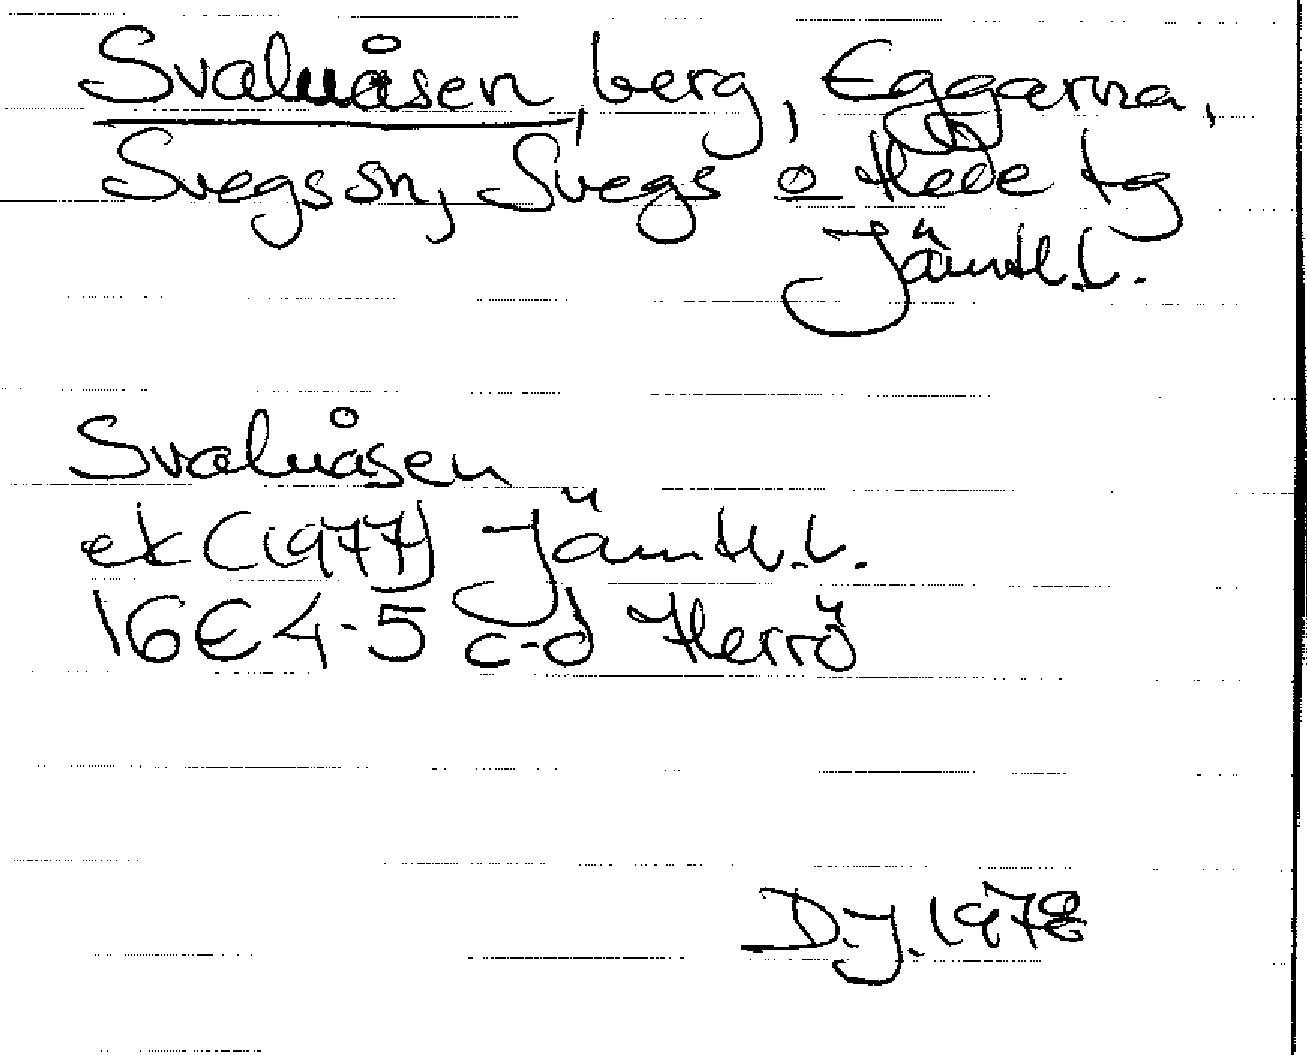 Svaluåsen, berg, Eggarna,
Svegs sn, Svegs o Hede tg
Jämtl.l.
Svaluåsen
ek (1977) Jämtl.l.
16E4-5 c-d Herrö
D.J. 1978